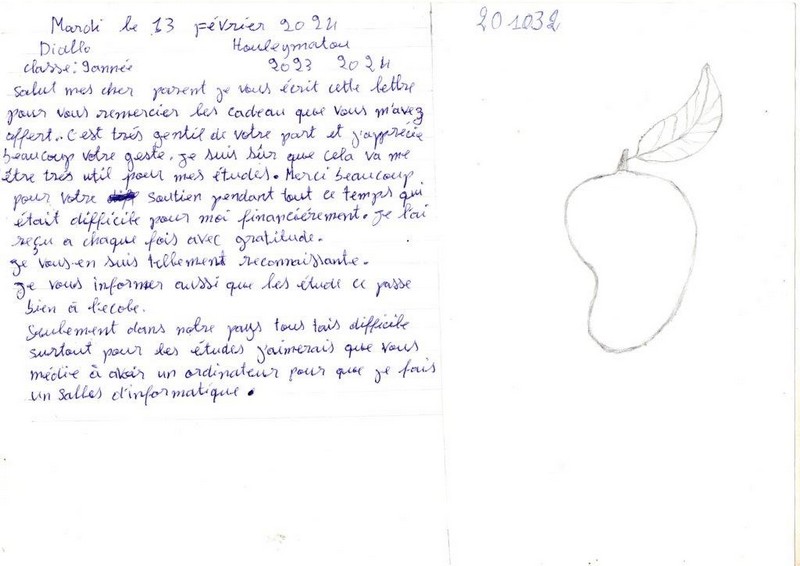 Mardi le 13 Février 2024
Diallo Houleymatou
classe: 9année 2023 2024
Salut mes cher parent je vous écrit cette lettre
pour vous remercier les cadeau que vous m'avez
offert.. C'est trés gentil de votre part et j'apprécie
beaucoup votre geste. Je suis sûr que cela va me
être trés util pour mes études. Merci beaucoup
pour votre soutien pendant tout ce temps qui
était difficile pour moi financiérement. Je l'ai
reçu a chaque fois avec gratitude.
Je vous-en suis tellement reconnaissante.
Je vous informer aussi que les étude ce passe
bien à l'école.
Seulement dans notre pays tous tais difficile
surtout pour les études j'aimerais que vous
m'édie à avoir un ordinateur pour que je fais
un salles d'informatique.
201032